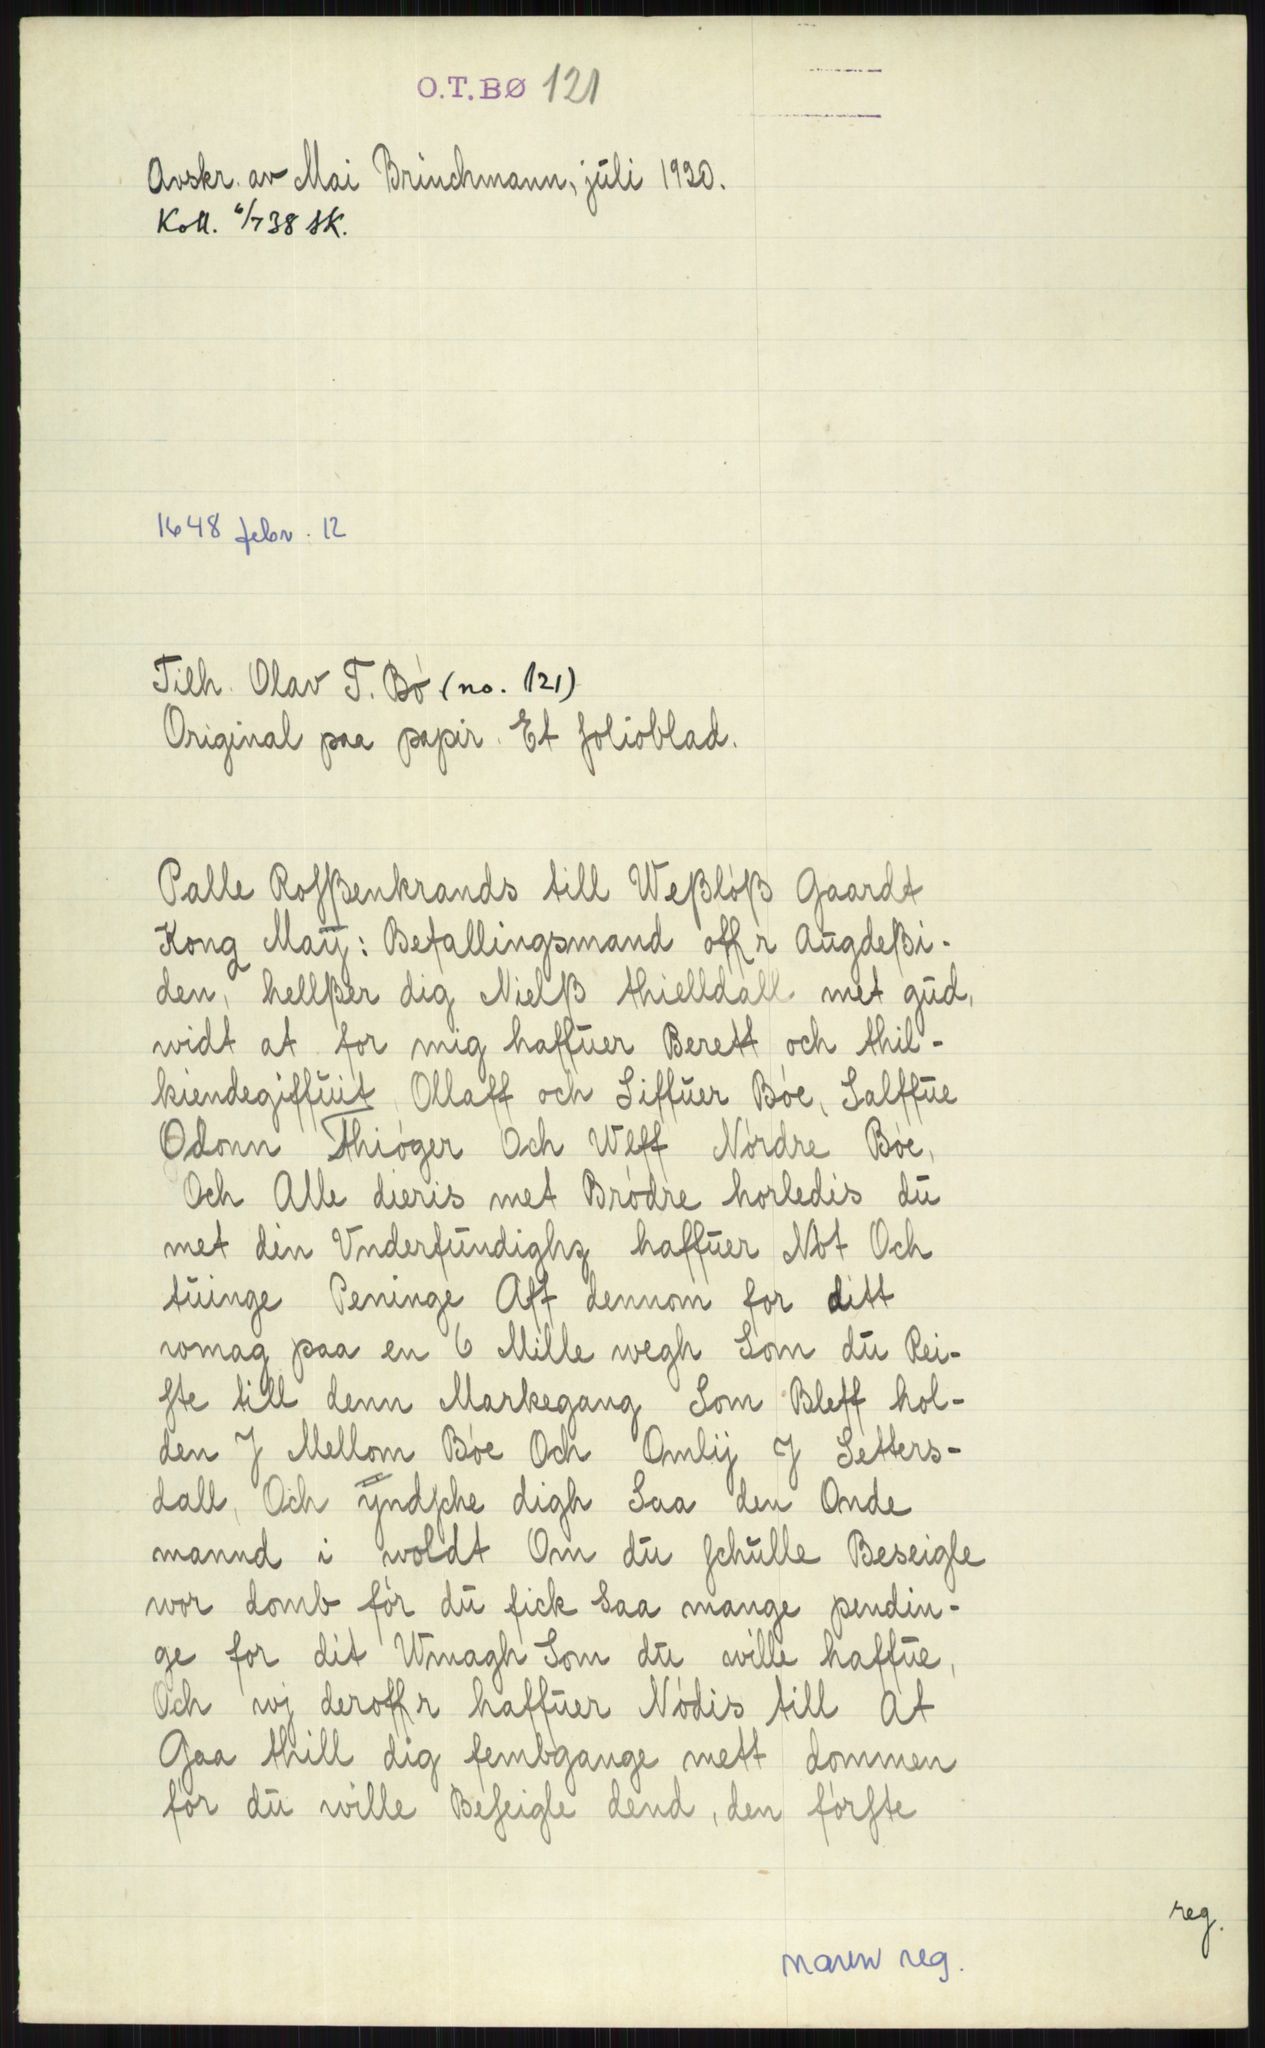 O.T.BØ 121
Avskr. av Mai Brinchmann, juli 1920.
Koll. 6/7 38 SK.
1648 febr. 12
Tilh. Olav T. Bó (no. 121)
Original paa papir. Et folioblad.
Palle Rosßenkrands till Weßlóß Gaardt
Kong Maÿ: Befallingsmand offr Augdeßi-
den, hellßer dig Nielß thielldall met gud,
widt at for mig haffuer Berett och thil-
kiendegiffuit Ollaff och Siffuer Bóe, Salffue
Odonn Thióger Och Wlff Nórdre Bóe,
Och Alle dieris met Bródre horledis du
met din Vnderfundighz haffuer Nót Och
tuinge Peninge Aff dennom for ditt
womag paa en 6 Mille wegh Som du Rei-
ste till denn Markegang Som Bleff hol-
den J Mellom Bóe Och Omlij J Setters-
dall, Och ÿndsche digh Saa den Onde
mannd i woldt Om du schulle Beseigle
wor domb fór du fick Saa mange pendin-
ge for dit Wmagh Som du wille haffue,
Och wj deroffr haffuer Nódis till At
Gaa thill dig fembgange mett dommen
fór du wille Beseigle dend, den fórste
reg.
navn reg.